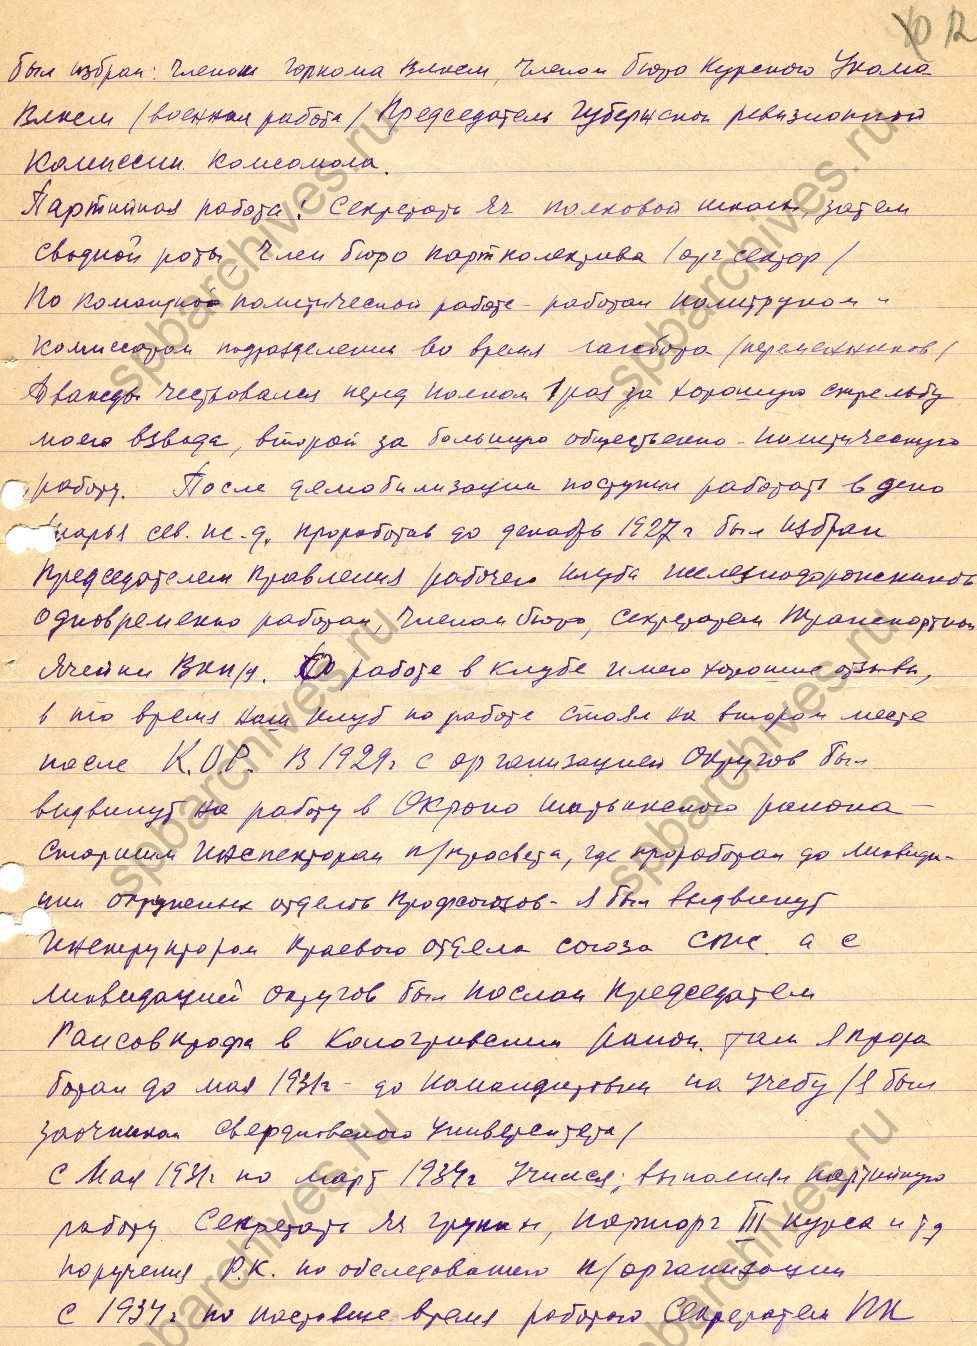 12
был избран: членом горкома ВЛКСМ, членом бюро Курского Укома
ВЛКСМ /военная работа/ Председатель губернской ревизионной
комиссии комсомола.
Партийная работа: Секретарь яч полковой школы, затем
сводной роты, член бюро партколектива /орг сектор/
По командной политической работе - работал политруком и
комиссаром подразделения во время
Дважды чествовался перед полком 1 раз за хорошую стрельбу
моего взвода, второй за большую общественно-политическую
работу. После демобилизации поступил работать в депо
сев. ж.-д. проработав до декабря 1927 г был избран
председателем правления рабочего клуба железнодорожников
одновременно работал членом бюро, секретарем транспортной
ячейки ВКП/б. По работе в клубе имею хорошие отзывы,
в то время наш клуб по работе стоял на втором месте
после К.О.Р. В 1929 г с организацией округов был
выдвинут на работу в района
старшим инспектором п/просвета, где проработал до ликвида-
ции окружных отделов профсоюзов - я был выдвинут
инструктором краевого отдела союза а с
ликвидацией округов был послан председателем
Райсовпрофа в Кологривский район. там я прора
ботал до мая 1931 г - до командировки на учебу /я был
заочником свердловского университета/
С Мая 1931 г по март 1934 г учился; выполнял партийную
работу Секретарь яч группы, парторг III курса и тд
поручения Р.К. по обследованию п/организации
С 1934 г по настоящее время работаю Секретарем ПК
spbarchives.ru
spbarchives.ru
spbarchives.ru
spbarchives.ru
spbarchives.ru
spbarchives.ru